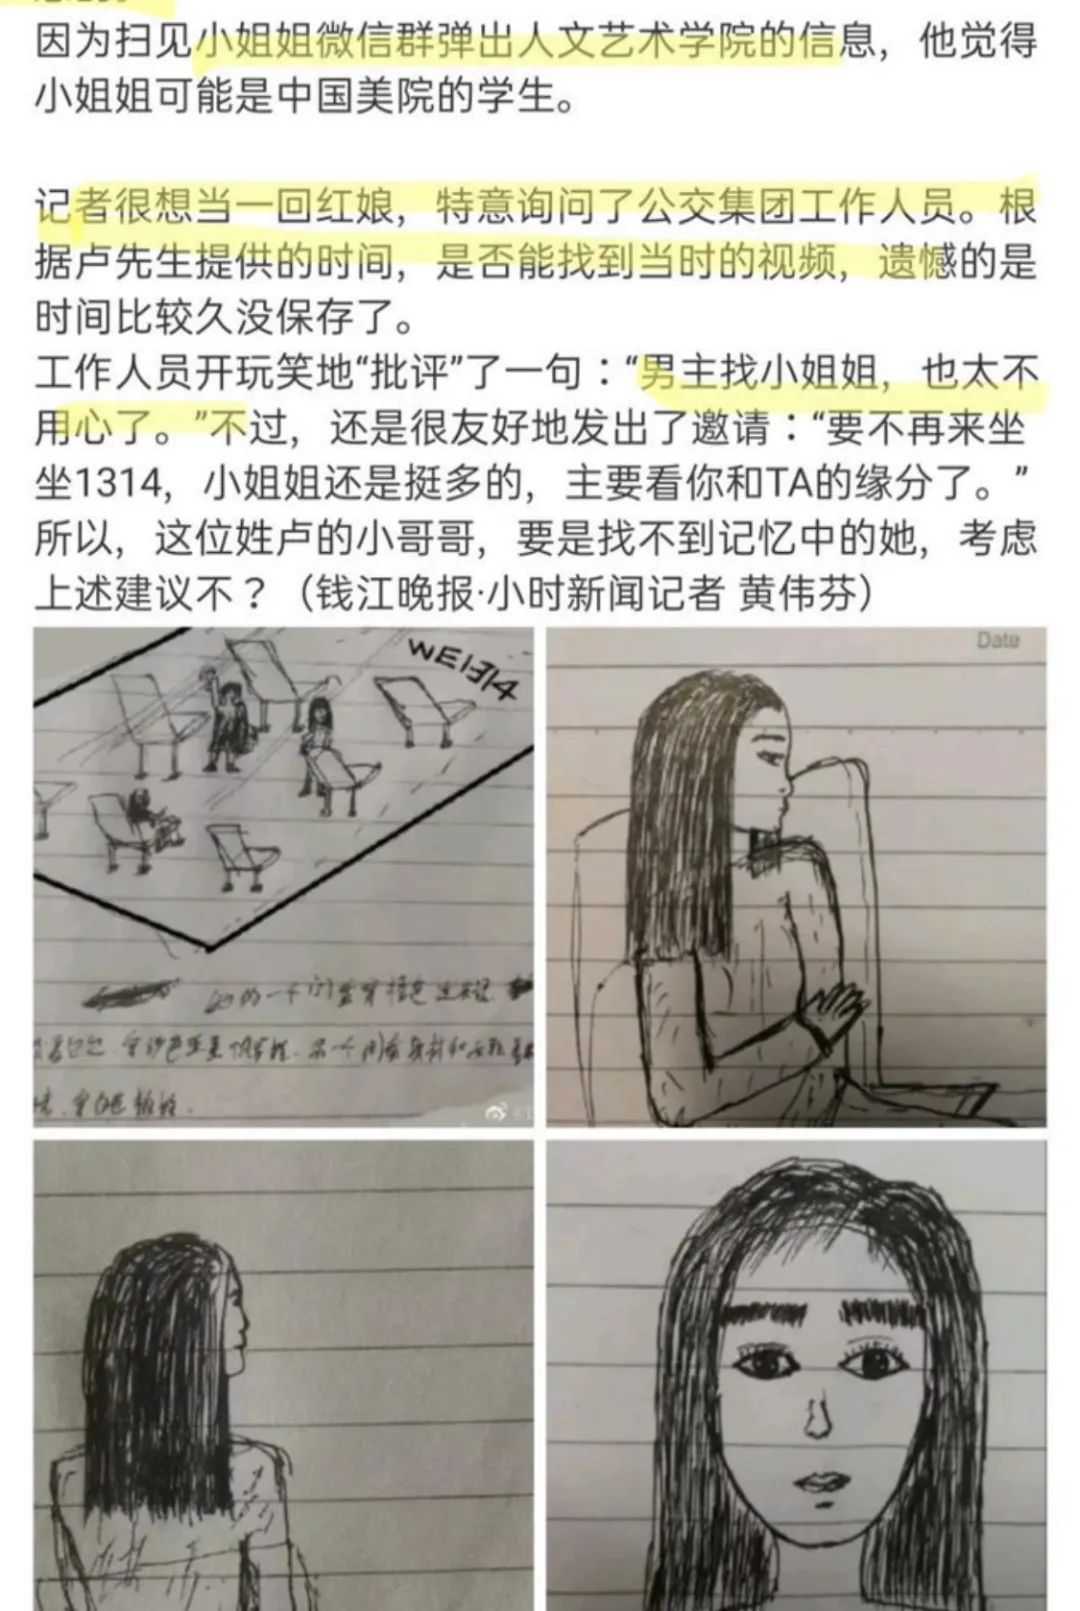 因为扫见小姐姐微信群弹出人文艺术学院的信息，他觉得
小姐姐可能是中国美院的学生。
记者很想当一回红娘，特意询问了公交集团工作人员。根
据卢先生提供的时间，是否能找到当时的视频，遗憾的是
时间比较久没保存了。
工作人员开玩笑地“批评”了一句：“男主找小姐姐，也太不
用心了。”不过，还是很友好地发出了邀请：“要不再来坐
坐1314，小姐姐还是挺多的，主要看你和TA的缘分了。”
所以，这位姓卢的小哥哥，要是找不到记忆中的她，考虑
上述建议不？（钱江晚报·小时新闻记者 黄伟芬）
WE1314
Date